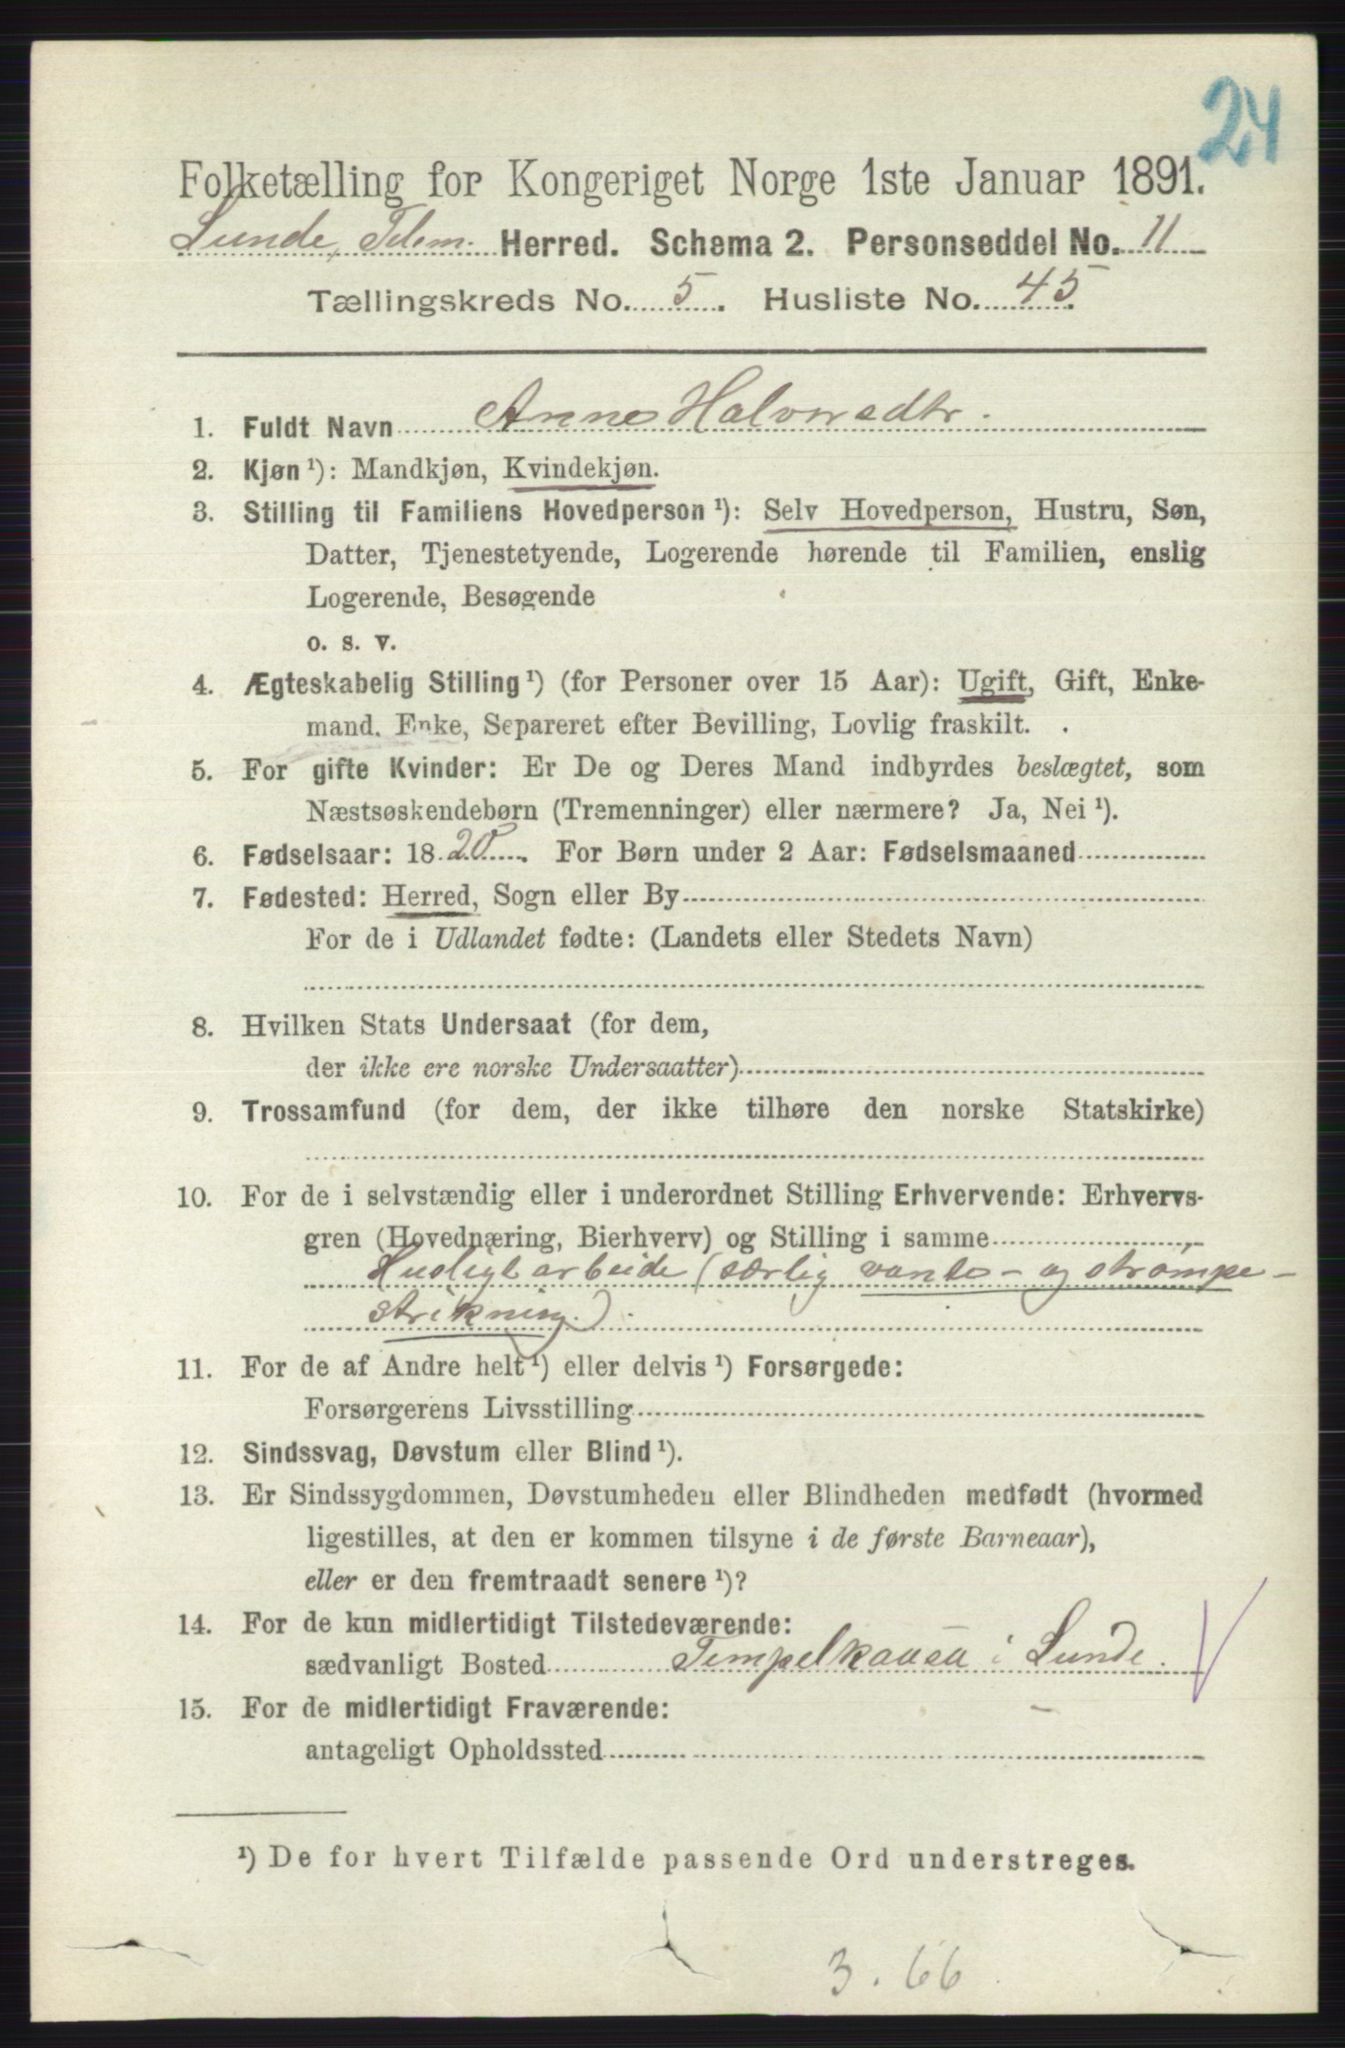 24
Folketælling for Kongeriget Norge 1ste Januar 1891.
Lunde, Telem. Herred. Schema 2. Personseddel No. 11
Tællingskreds No. 5. Husliste No. 45
1. Fuldt Navn Anne Halvorsdtr.
2. Kjøn ¹): Mandkjøn, Kvindekjøn.
3. Stilling til Familiens Hovedperson ¹): Selv Hovedperson, Hustru, Søn,
Datter, Tjenestetyende, Logerende hørende til Familien, enslig
Logerende, Besøgende
o. s. v.
4. Ægteskabelig Stilling ¹) (for Personer over 15 Aar): Ugift, Gift, Enke-
mand, Enke, Separeret efter Bevilling, Lovlig fraskilt.
5. For gifte Kvinder: Er De og Deres Mand indbyrdes beslægtet, som
Næstsøskendebørn (Tremenninger) eller nærmere? Ja, Nei ¹).
6. Fødselsaar: 1820. For Børn under 2 Aar: Fødselsmaaned
7. Fødested: Herred, Sogn eller By
For de i Udlandet fødte: (Landets eller Stedets Navn)
8. Hvilken Stats Undersaat (for dem,
der ikke ere norske Undersaatter)
9. Trossamfund (for dem, der ikke tilhøre den norske Statskirke)
10. For de i selvstændig eller i underordnet Stilling Erhvervende: Erhvervs-
gren (Hovednæring, Bierhverv) og Stilling i samme
Husligt arbeide (særlig vante- og strømpe-
strikning).
11. For de af Andre helt ¹) eller delvis ¹) Forsørgede:
Forsørgerens Livsstilling
12. Sindssvag, Døvstum eller Blind ¹).
13. Er Sindssygdommen, Døvstumheden eller Blindheden medfødt (hvormed
ligestilles, at den er kommen tilsyne i de første Barneaar),
eller er den fremtraadt senere ¹)?
14. For de kun midlertidigt Tilstedeværende:
sædvanligt Bosted Tempelkaasa i Lunde.
15. For de midlertidigt Fraværende:
antageligt Opholdssted
¹) De for hvert Tilfælde passende Ord understreges.
3. 66